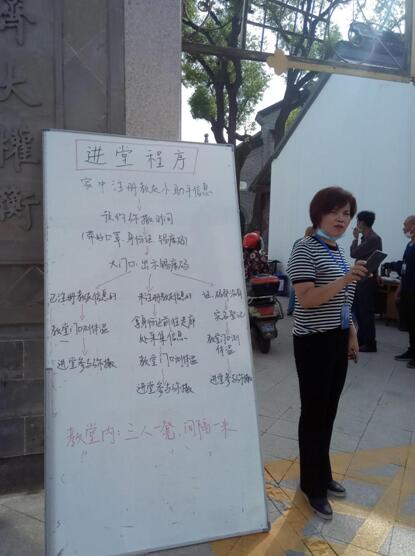 齊大權衡
进堂程序
家中注册教友小助手信息
预约弥撒时间
(带好口罩、身份证、健康码)
大门口出示健康码
已注册教友信息的
教堂门口测体温
进堂参与弥撒
未注册教友信息的
拿身份证前往走廊
处采集信息
教堂门口测体温
进堂参与弥撒
实名登记
教堂门口测
体温
进堂参与弥撒
教堂内：三人一凳，间隔一米